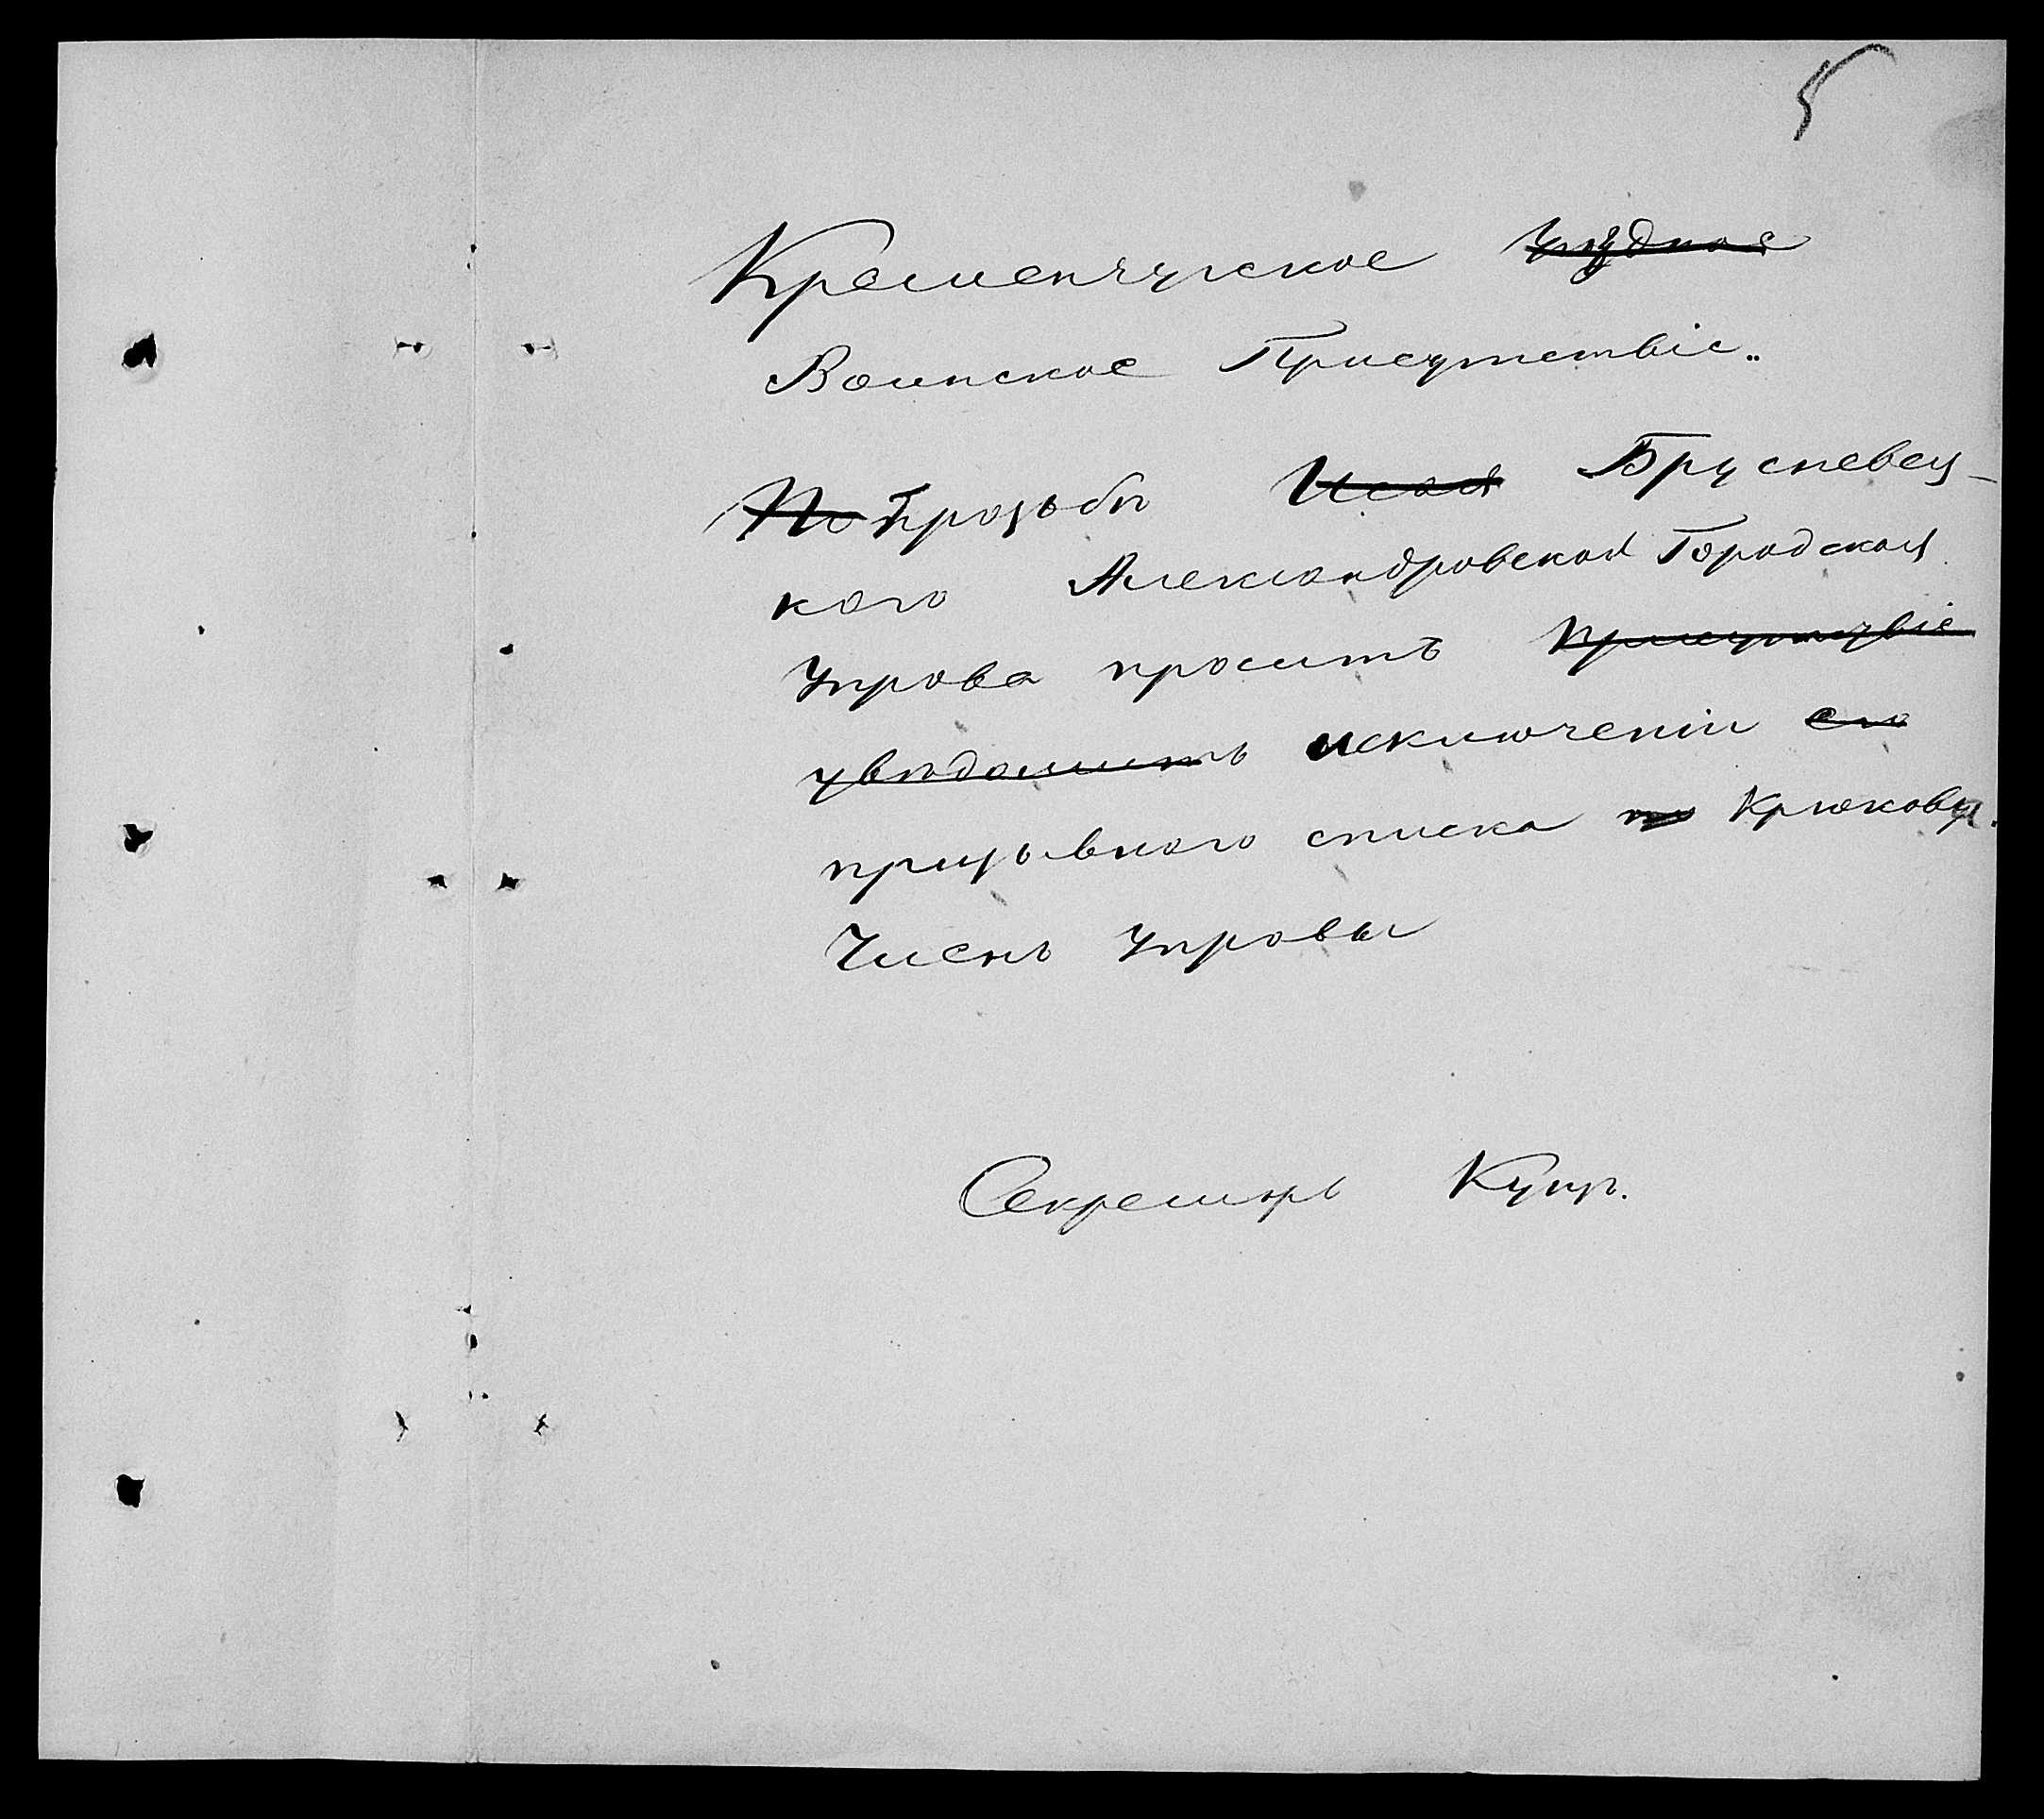 5
Кременчугское уѣздное
Воинское Присутствіе.
По Прозьбѣ Исая Бруспевец-
кого Александровской Городской
Управа проситъ Присутствіе
увѣдомить исключеніи его
призывного списка по Крюкову.
Членъ Управы
Секретарь